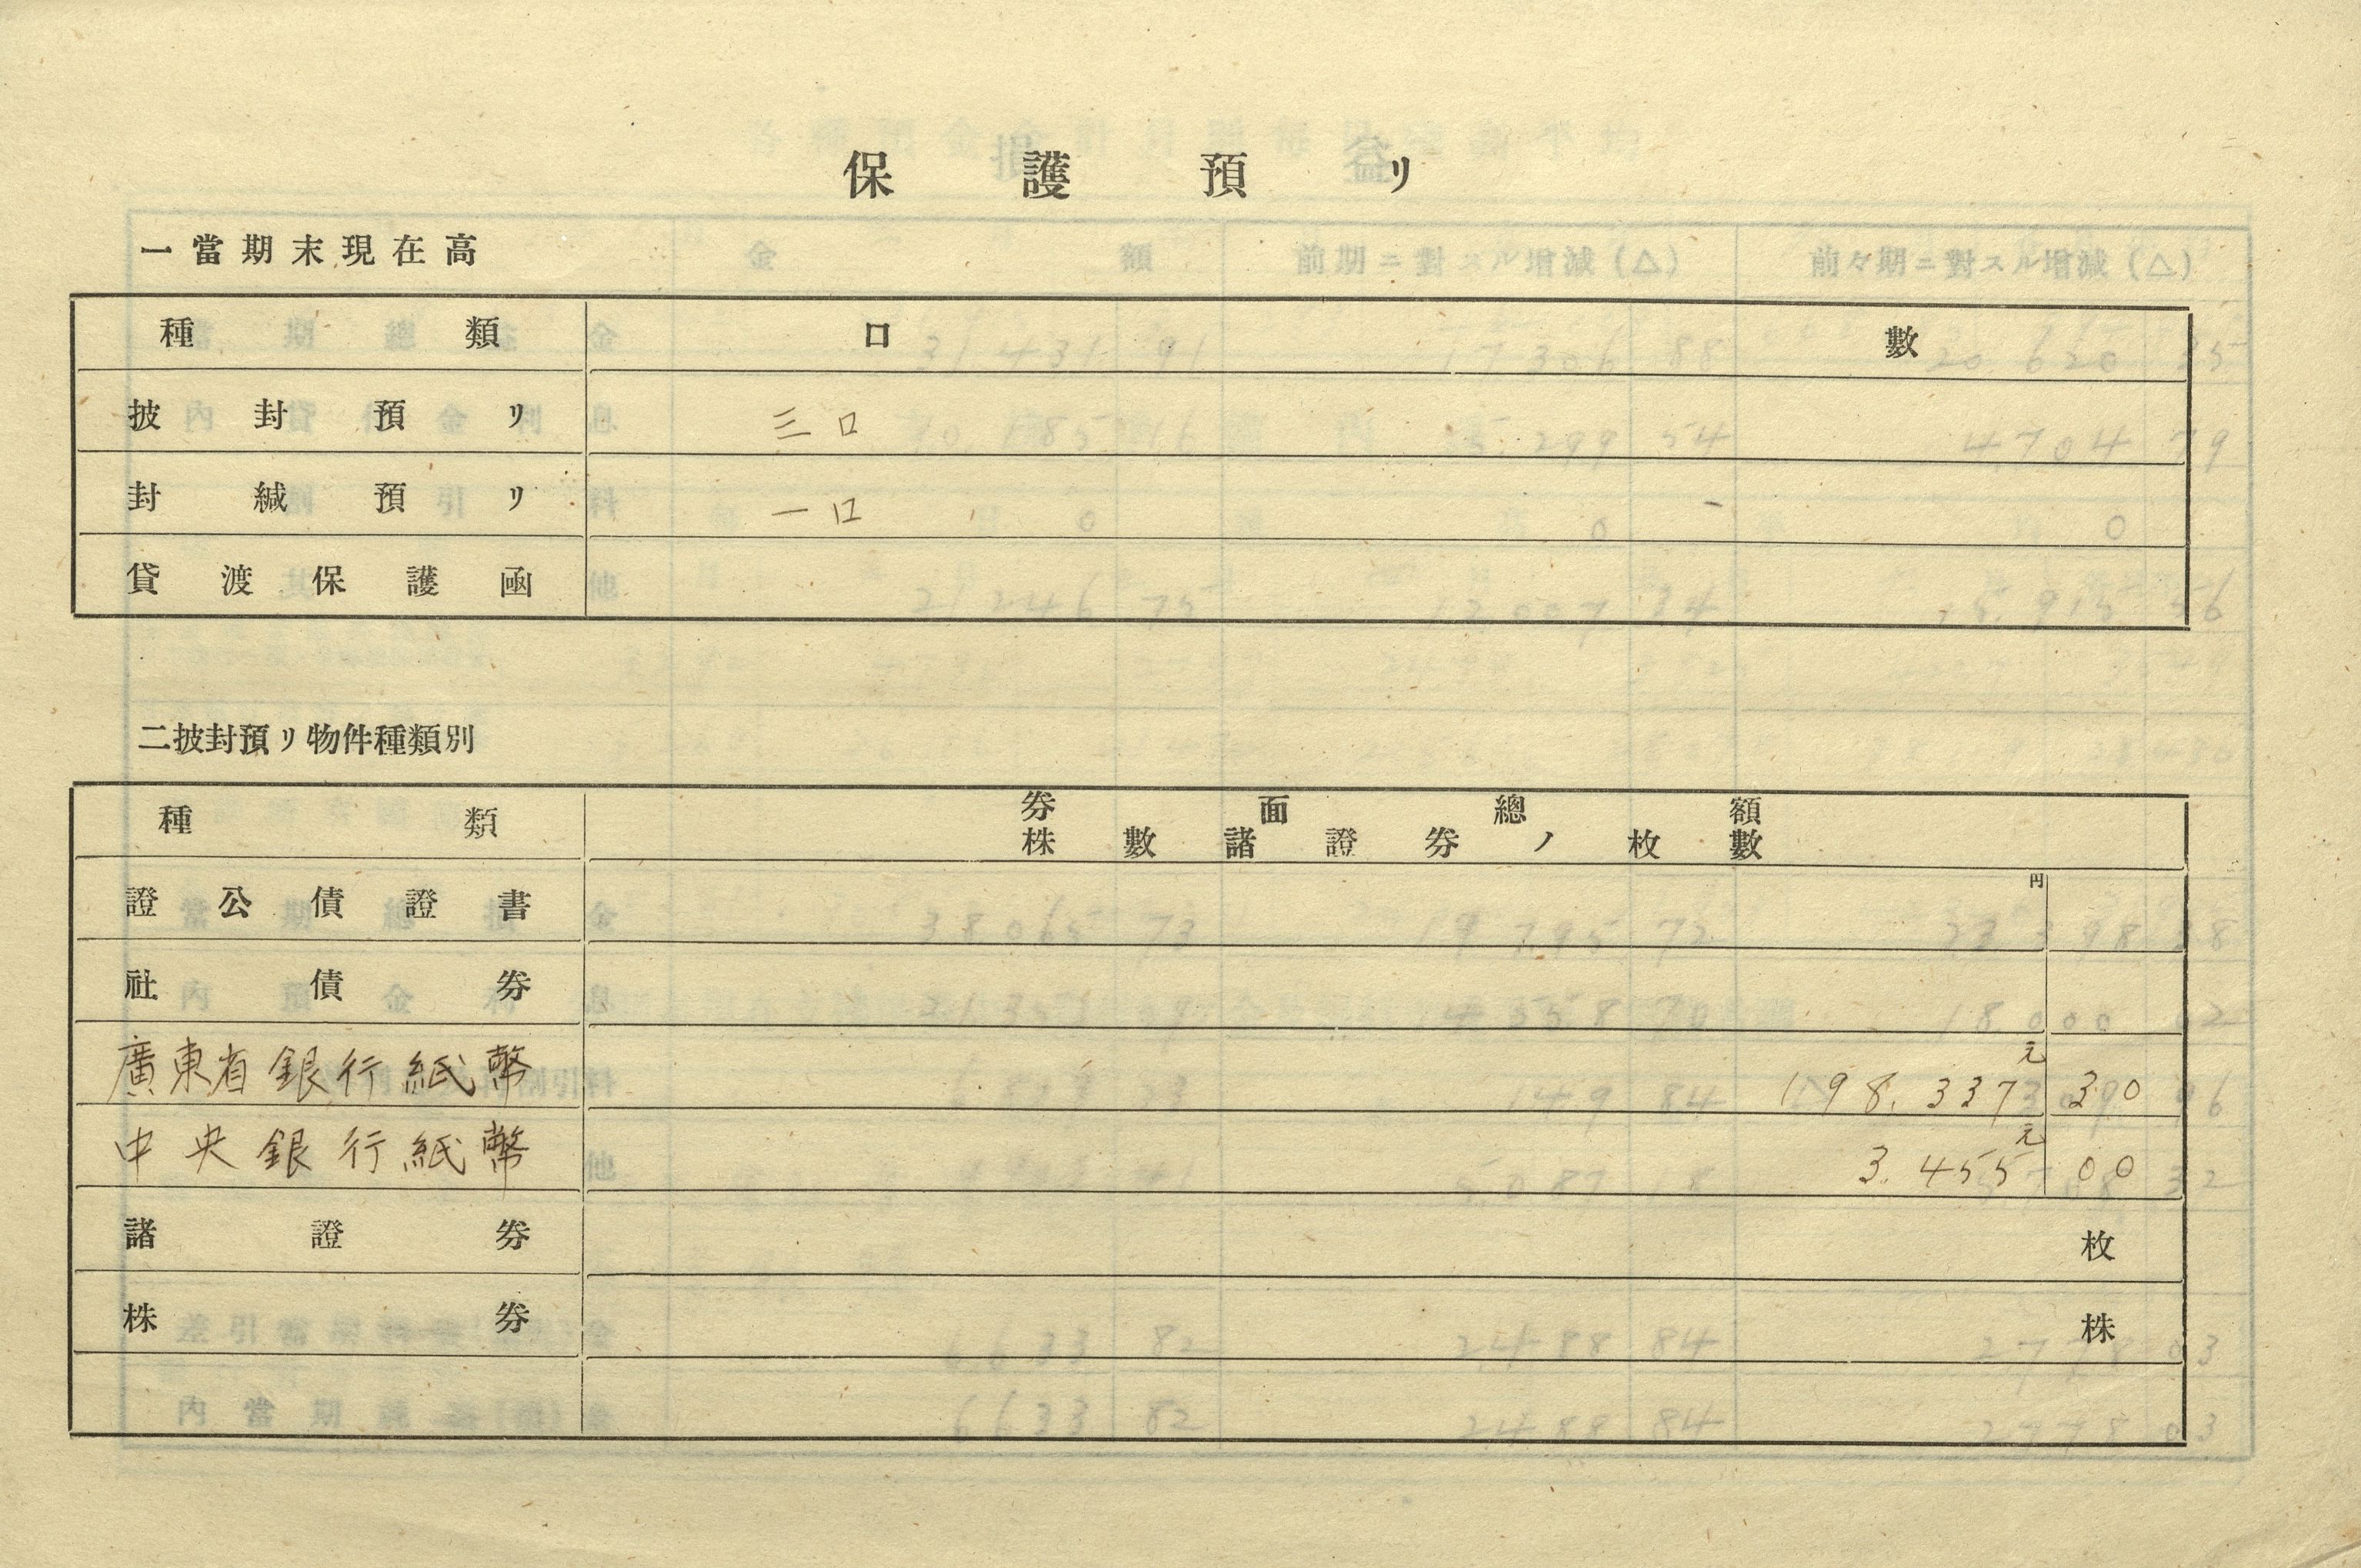 保護預リ
一當期末現在高
種類 口數
披封預リ 三口
封緘預リ 一口
貸渡保護函
二披封預リ物件種類別
種類 券面總額
株數諸證券ノ枚數
證公債證書 円
社債券
廣東省銀行紙幣 198.337元30
中央銀行紙幣 3.455元00
諸證券 枚
株券 株